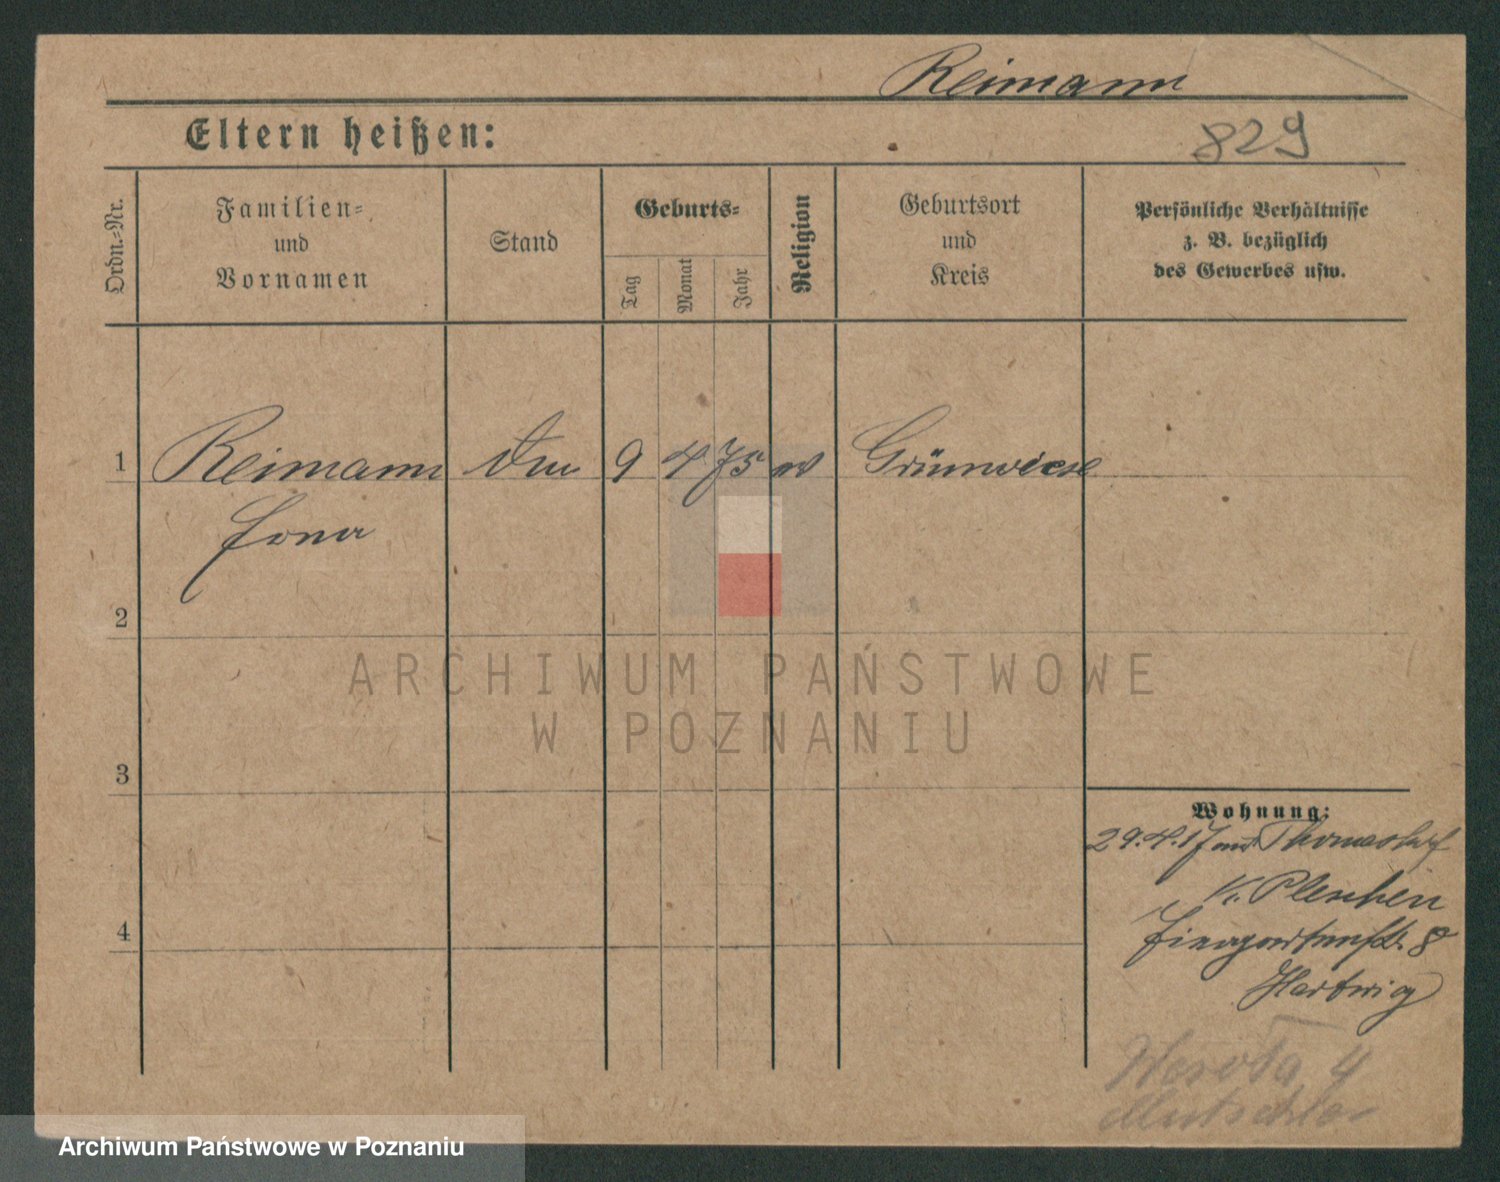 Reimann
829
Eltern heißen:
Ordn.-Nr.
Familien-
und
Vornamen
Stand
Geburts-
Tag
Monat
Jahr
Religion
Geburtsort
und
Kreis
Persönliche Verhältnisse
z. B. bezüglich
des Gewerbes usw.
1 Reimann 9 4 75 Grünwiese
2
3
4
Wohnung:
29.4.17 aus
K. Pleschen
Tiergartenstr. 8
Hartwig
4
ARCHIWUM PAŃSTWOWE
W POZNANIU
Archiwum Państwowe w Poznaniu